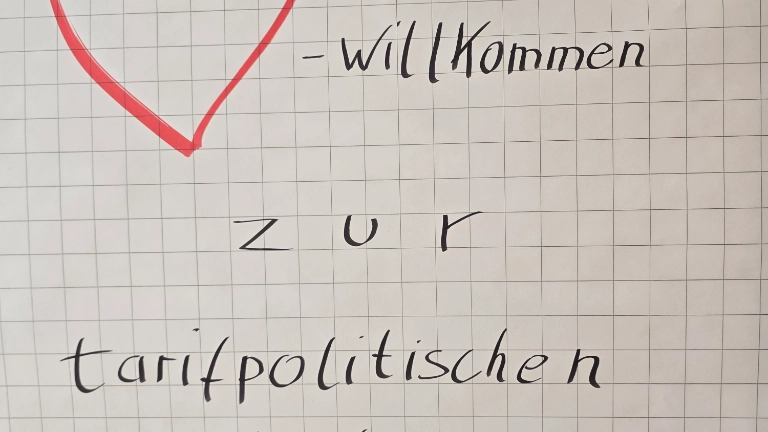 -Willkommen
zur
tarifpolitischen